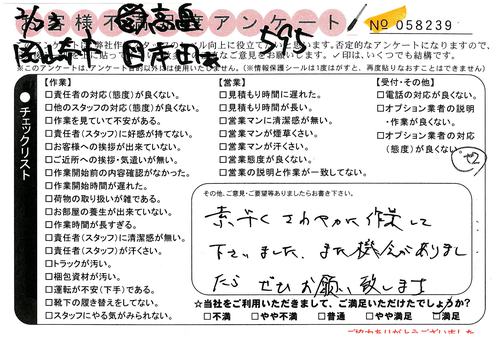 お客様不満足度アンケート
№ 058239
2/3
595
チェックリスト
【作業】
□責任者の対応(態度)が良くない。
□他のスタッフの対応(態度)が良くない。
□作業を見ていて不安がある。
□責任者(スタッフ)に好感が持てない。
□お客様への挨拶が出来ていない。
□ご近所への挨拶・気遣いが無い。
□作業開始前の内容確認がなかった。
□作業開始時間が遅れた。
□荷物の取り扱いが雑である。
□お部屋の養生が出来ていない。
□作業時間が長すぎる。
□責任者(スタッフ)に清潔感が無い。
□責任者(スタッフ)が汗くさい。
□トラックが汚い。
□梱包資材が汚い。
□運転が不安(下手)である。
□靴下の履き替えをしてない。
□スタッフにやる気がみられない。
【営業】
□見積もり時間に遅れた。
□見積もり時間が長い。
□営業マンに清潔感が無い。
□営業マンが煙草くさい。
□営業マンが汗くさい。
□営業態度が良くない。
□営業の説明と作業が一致してない。
【受付・その他】
□電話の対応が良くない。
□オプション業者の説明
・作業が良くない。
□オプション業者の対応
(態度)が良くない。
その他、ご意見・ご要望等ありましたらお書き下さい。
素早く さわやかに作業して
下さいました。また機会がありまし
たら ぜひ お願い致します
☆当社をご利用いただきまして、ご満足いただけたでしょうか?
□不満 □やや不満 □普通 □やや満足 □満足
ご協力ありがとうございました